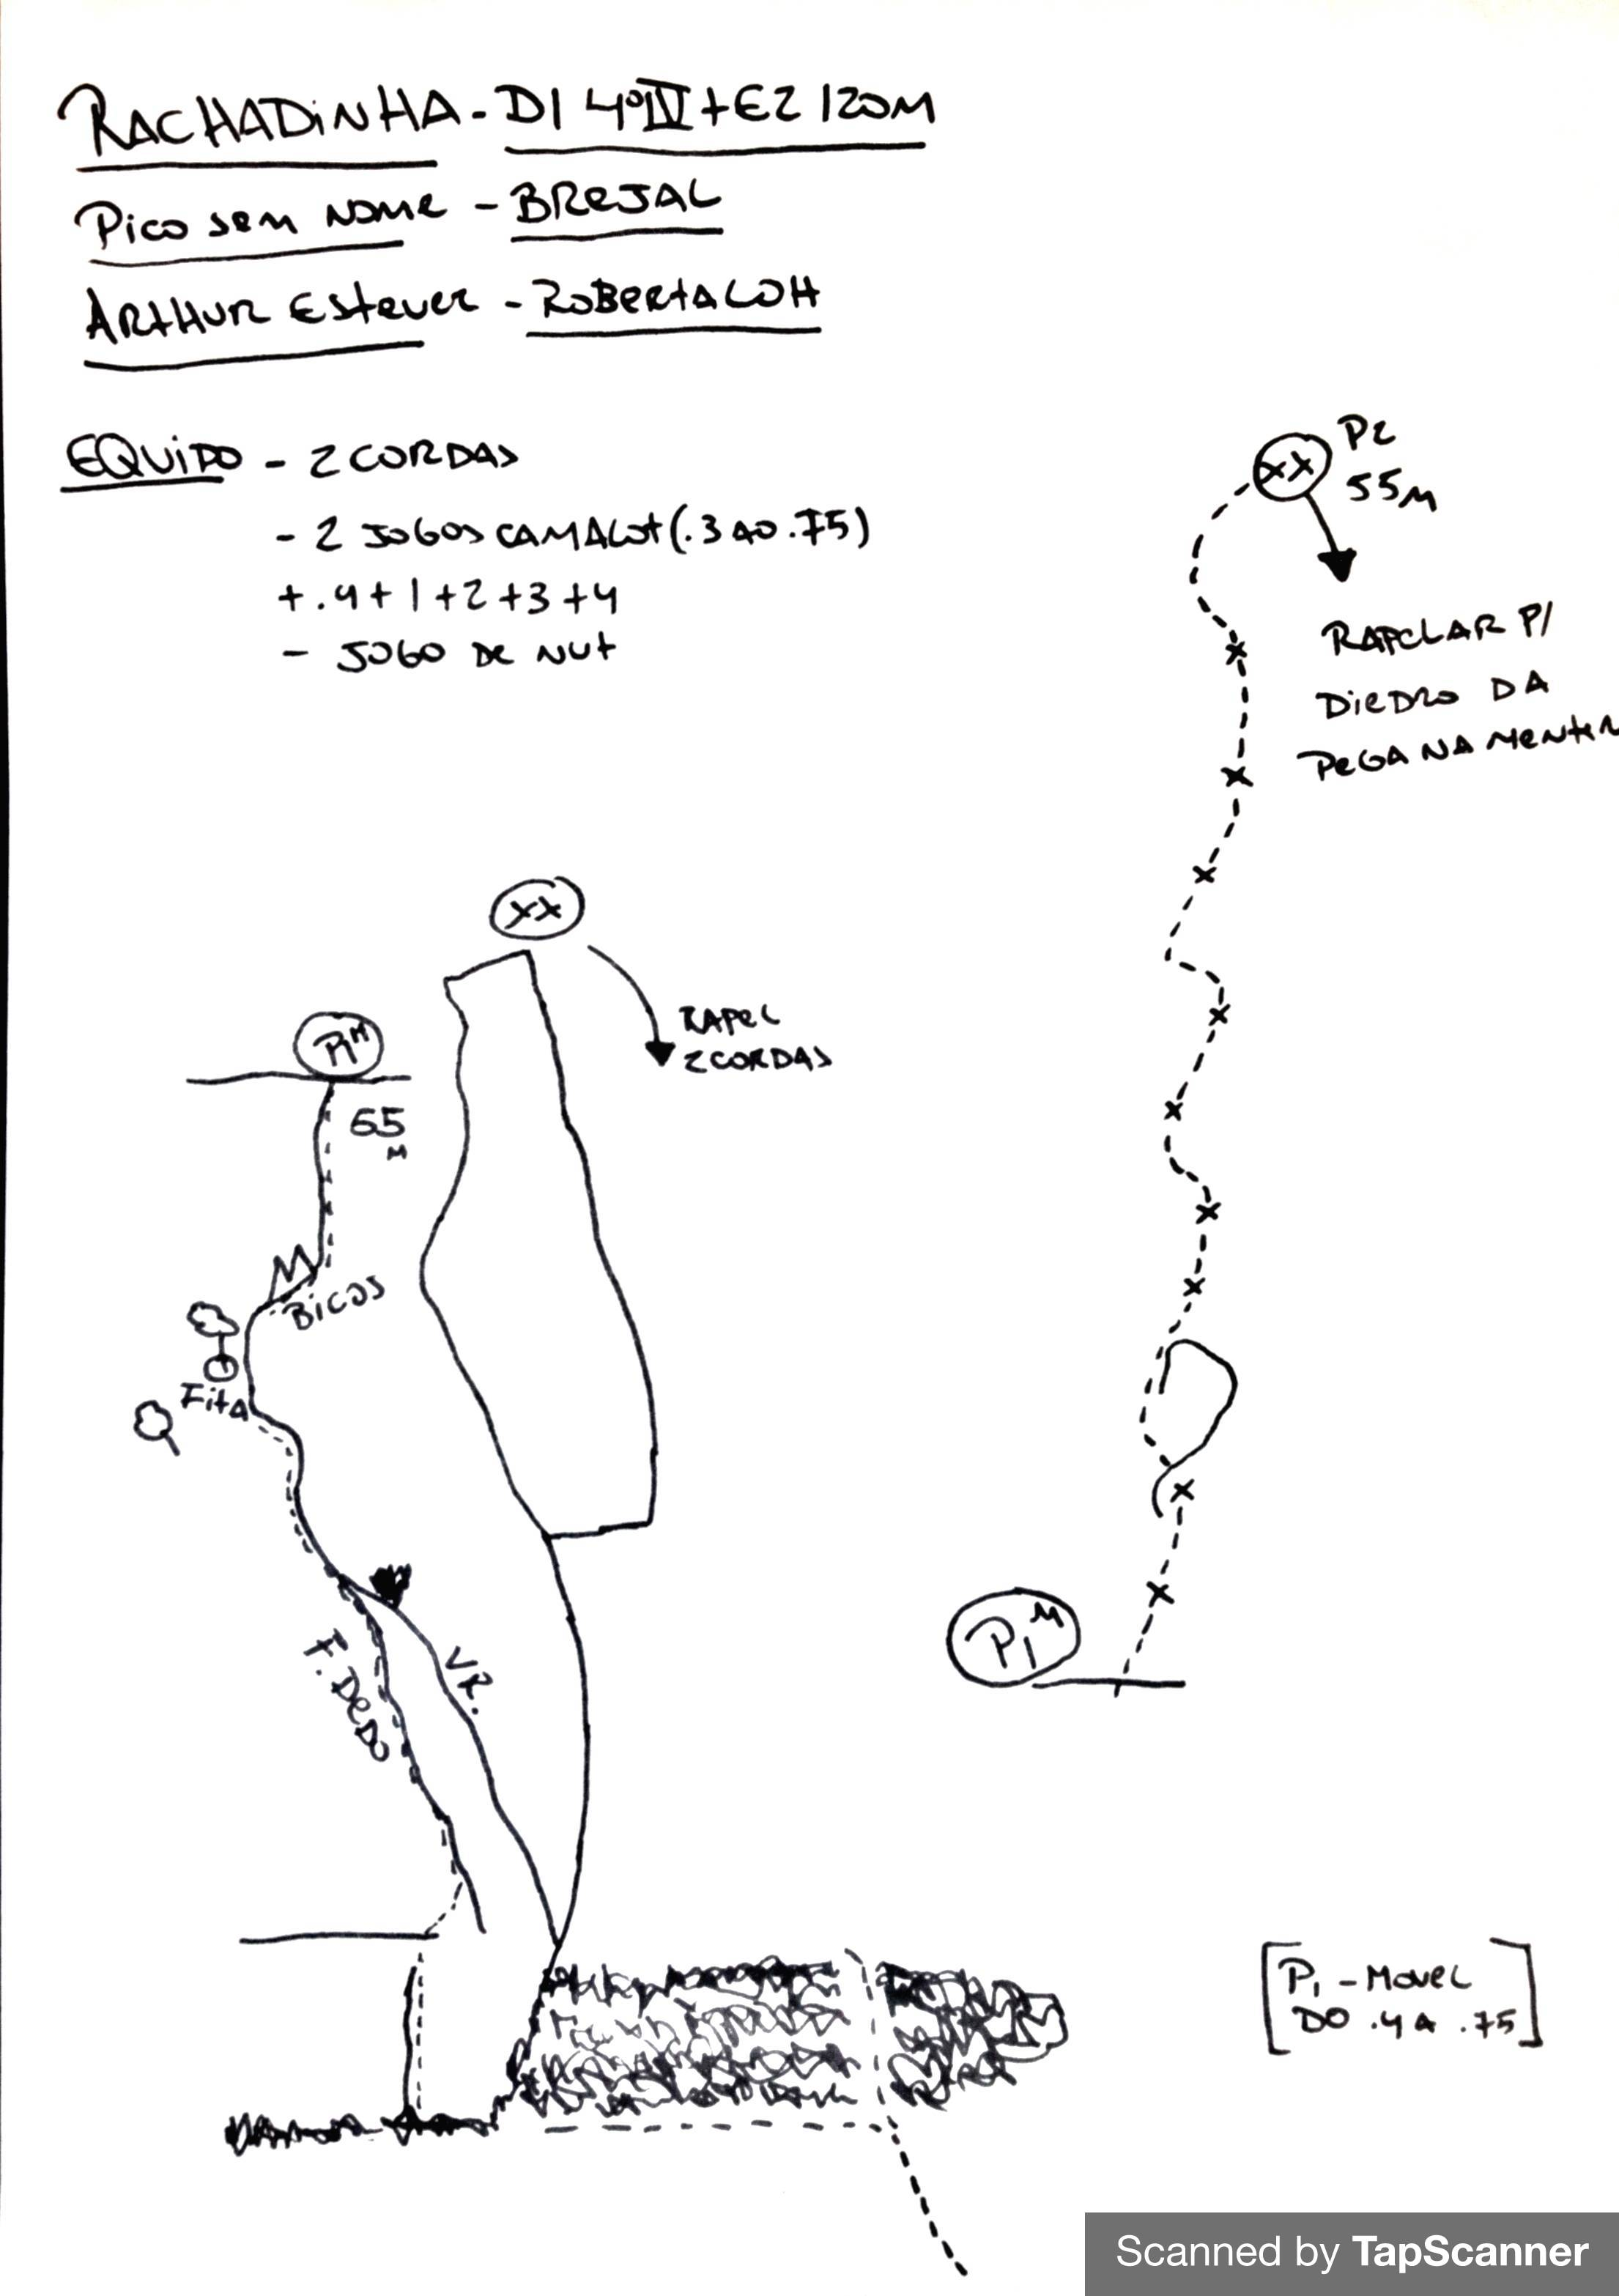 RACHADINHA - D1 4º IV+ E2 120M
PICO SEM NOME - BREJAL
ARTHUR ESTEVEZ - ROBERTA LOH
EQUIPO - 2 CORDAS
- 2 JOGOS CAMALOT (.3 AO .75)
+ .4 + 1 + 2 + 3 + 4
- JOGO DE NUT
P2
55M
XX
RAPELAR P/
DIEDRO DA
PEGA NA MENTIRA
XX
RAPEL
2 CORDAS
P1 M
65
M
BICOS
FITA
F. DEDO
VR.
P1 M
P1 - MOVEL
DO .4 A .75
Scanned by TapScanner